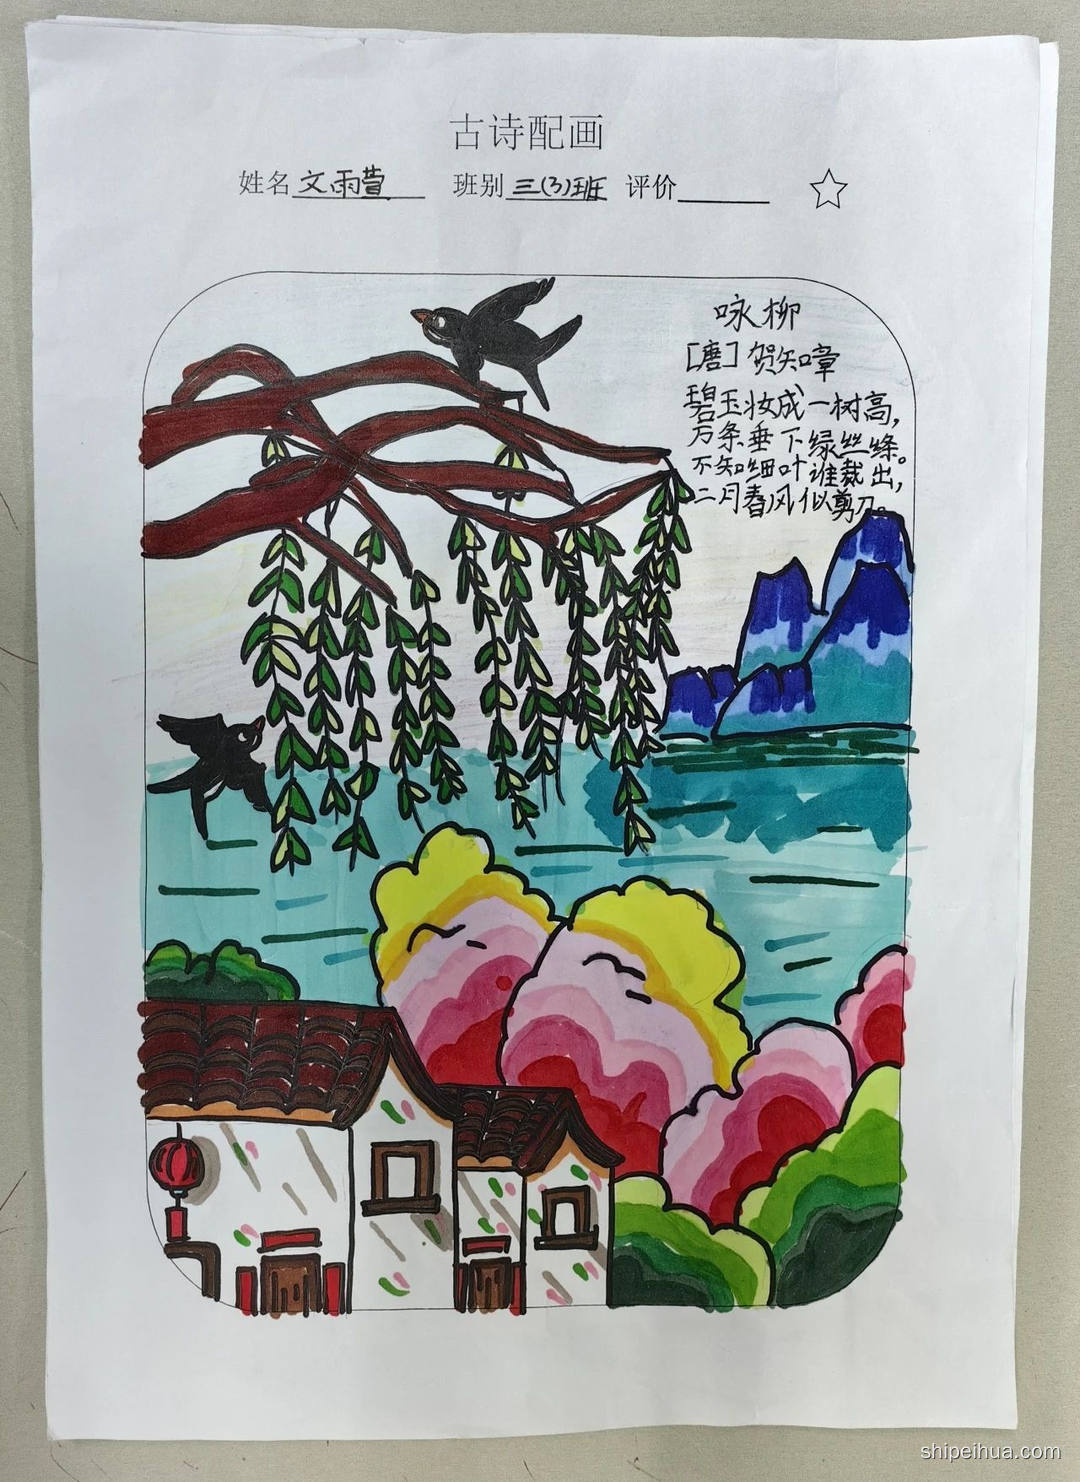 古诗配画
姓名 文雨萱 班别 三(3)班 评价
咏柳
[唐] 贺知章
碧玉妆成一树高，
万条垂下绿丝绦。
不知细叶谁裁出，
二月春风似剪刀。
shipeihua.com